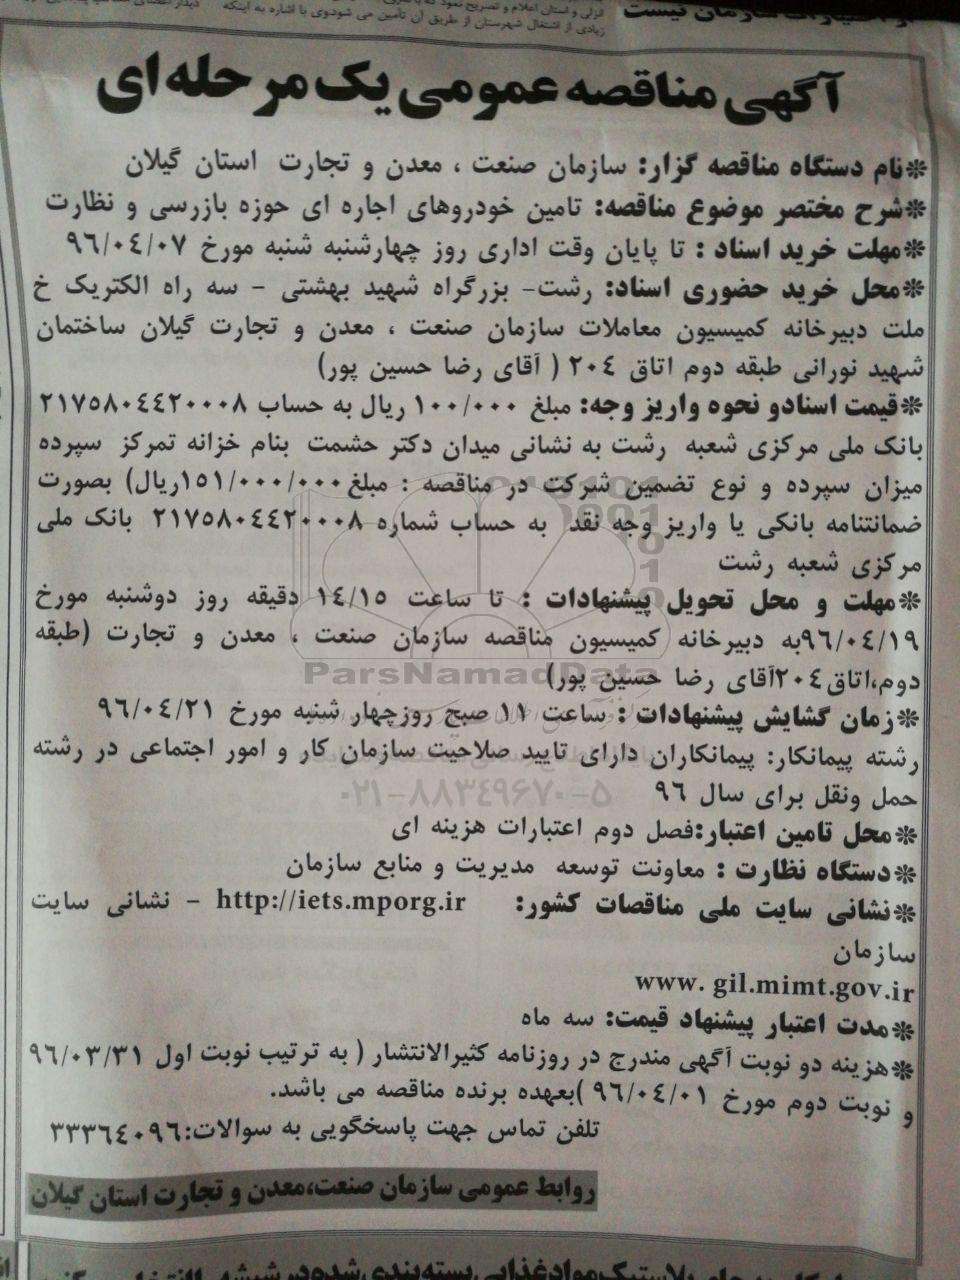 از اختیارات سازمان نیست
انزلی و استان اعلام و تصریح نمود که
زیادی از اشتغال شهرستان از طریق آن تأمین می شود وی با اشاره به اینکه
آگهی مناقصه عمومی یک مرحله ای
❊نام دستگاه مناقصه گزار: سازمان صنعت ، معدن و تجارت استان گیلان
❊شرح مختصر موضوع مناقصه: تامین خودروهای اجاره ای حوزه بازرسی و نظارت
❊مهلت خرید اسناد : تا پایان وقت اداری روز چهارشنبه شنبه مورخ ۹٦/۰٤/۰۷
❊محل خرید حضوری اسناد: رشت- بزرگراه شهید بهشتی - سه راه الکتریک خ
ملت دبیرخانه کمیسیون معاملات سازمان صنعت ، معدن و تجارت گیلان ساختمان
شهید نورانی طبقه دوم اتاق ۲۰٤ ( آقای رضا حسین پور)
❊قیمت اسنادو نحوه واریز وجه: مبلغ ۱۰۰/۰۰۰ ریال به حساب ۲۱۷۵۸۰٤٤۲۰۰۰۸
بانک ملی مرکزی شعبه رشت به نشانی میدان دکتر حشمت بنام خزانه تمرکز سپرده
میزان سپرده و نوع تضمین شرکت در مناقصه : مبلغ۱۵۱/۰۰۰/۰۰۰ریال) بصورت
ضمانتنامه بانکی یا واریز وجه نقد به حساب شماره ۲۱۷۵۸۰٤٤۲۰۰۰۸ بانک ملی
مرکزی شعبه رشت
❊مهلت و محل تحویل پیشنهادات : تا ساعت ۱٤/۱۵ دقیقه روز دوشنبه مورخ
۹٦/۰٤/۱۹به دبیرخانه کمیسیون مناقصه سازمان صنعت ، معدن و تجارت (طبقه
دوم،اتاق۲۰٤آقای رضا حسین پور)
ParsNamadData
❊زمان گشایش پیشنهادات : ساعت ۱۱ صبح روزچهار شنبه مورخ ۹٦/۰٤/۲۱
رشته پیمانکار: پیمانکاران دارای تایید صلاحیت سازمان کار و امور اجتماعی در رشته
حمل ونقل برای سال ۹٦
۰۲۱-۸۸۳۴۹۶۷۰-۵
❊محل تامین اعتبار:فصل دوم اعتبارات هزینه ای
❊دستگاه نظارت : معاونت توسعه مدیریت و منابع سازمان
❊نشانی سایت ملی مناقصات کشور: http://iets.mporg.ir - نشانی سایت
سازمان
www. gil.mimt.gov.ir
❊مدت اعتبار پیشنهاد قیمت: سه ماه
❊هزینه دو نوبت آگهی مندرج در روزنامه کثیرالانتشار ( به ترتیب نوبت اول ۹٦/۰۳/۳۱
و نوبت دوم مورخ ۹٦/۰٤/۰۱ )بعهده برنده مناقصه می باشد.
تلفن تماس جهت پاسخگویی به سوالات:۳۳۳٦٤۰۹٦
روابط عمومی سازمان صنعت،معدن و تجارت استان گیلان